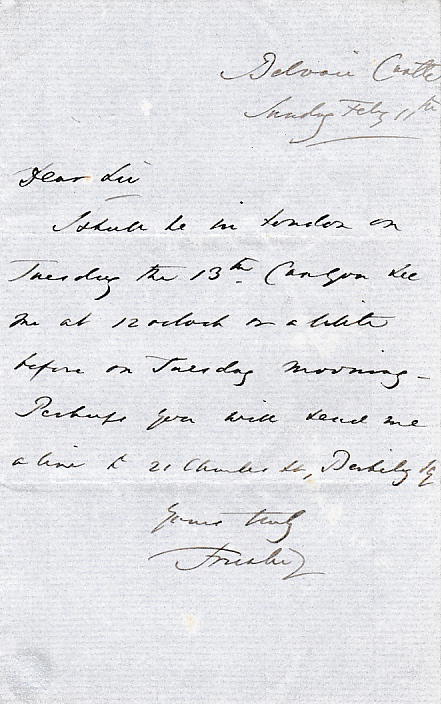 Belvoir Castle
Sunday Feby 11th
Dear Sir
I shall be in London on
Tuesday the 13th. Can you see
me at 12 oclock or a little
before on Tuesday morning -
Perhaps you will send me
a line to 21 Charles St, Berkeley Sq
Yours truly